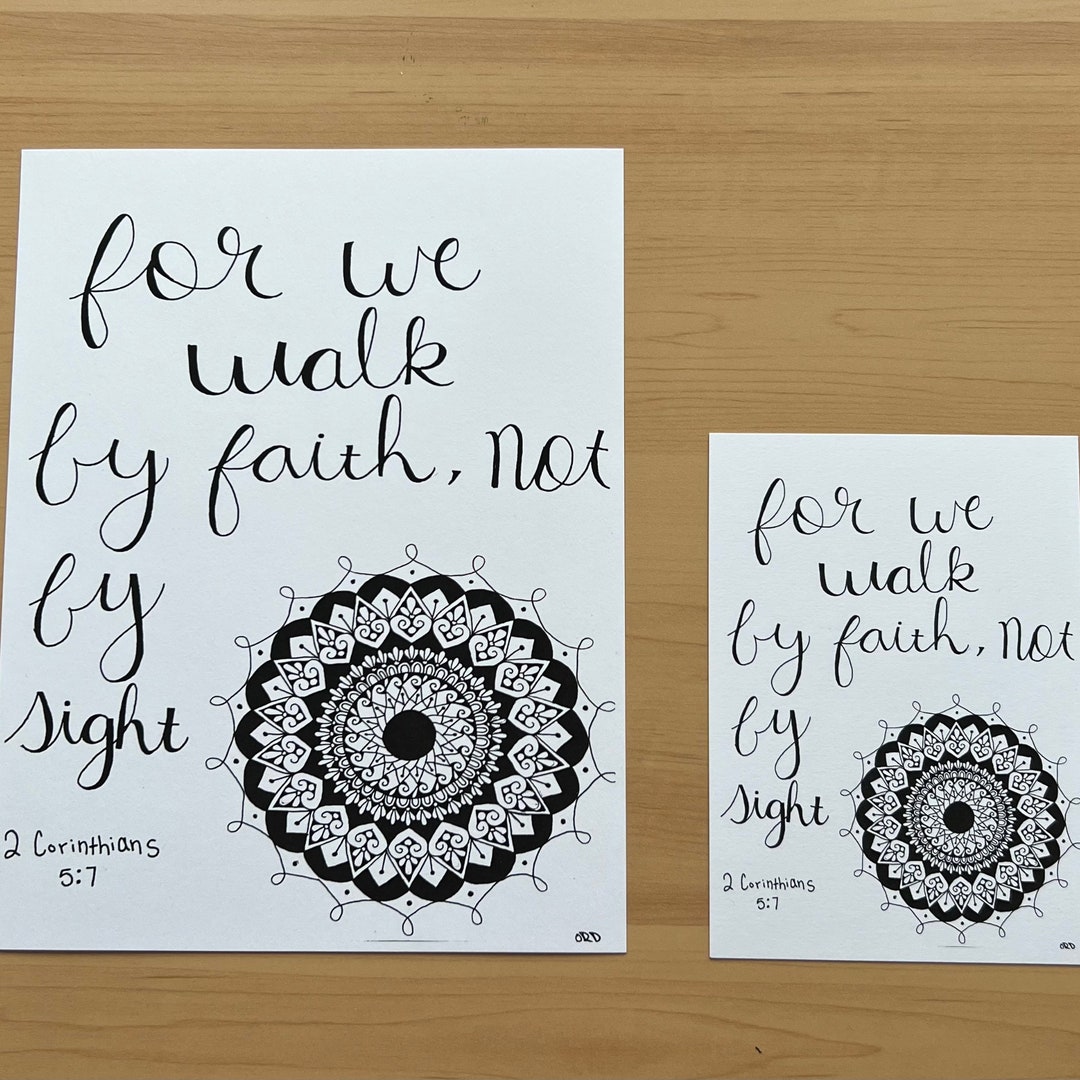 for we
walk
by faith, not
by
sight
2 Corinthians
5:7
ORD
for we
walk
by faith, not
by
sight
2 Corinthians
5:7
ORD